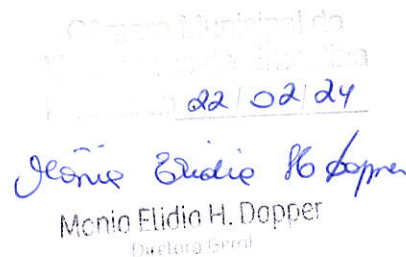 Câmara Municipal de
22/02/24
Mônia Elidia H. Dopper
Monia Elidia H. Dopper
Diretora Geral